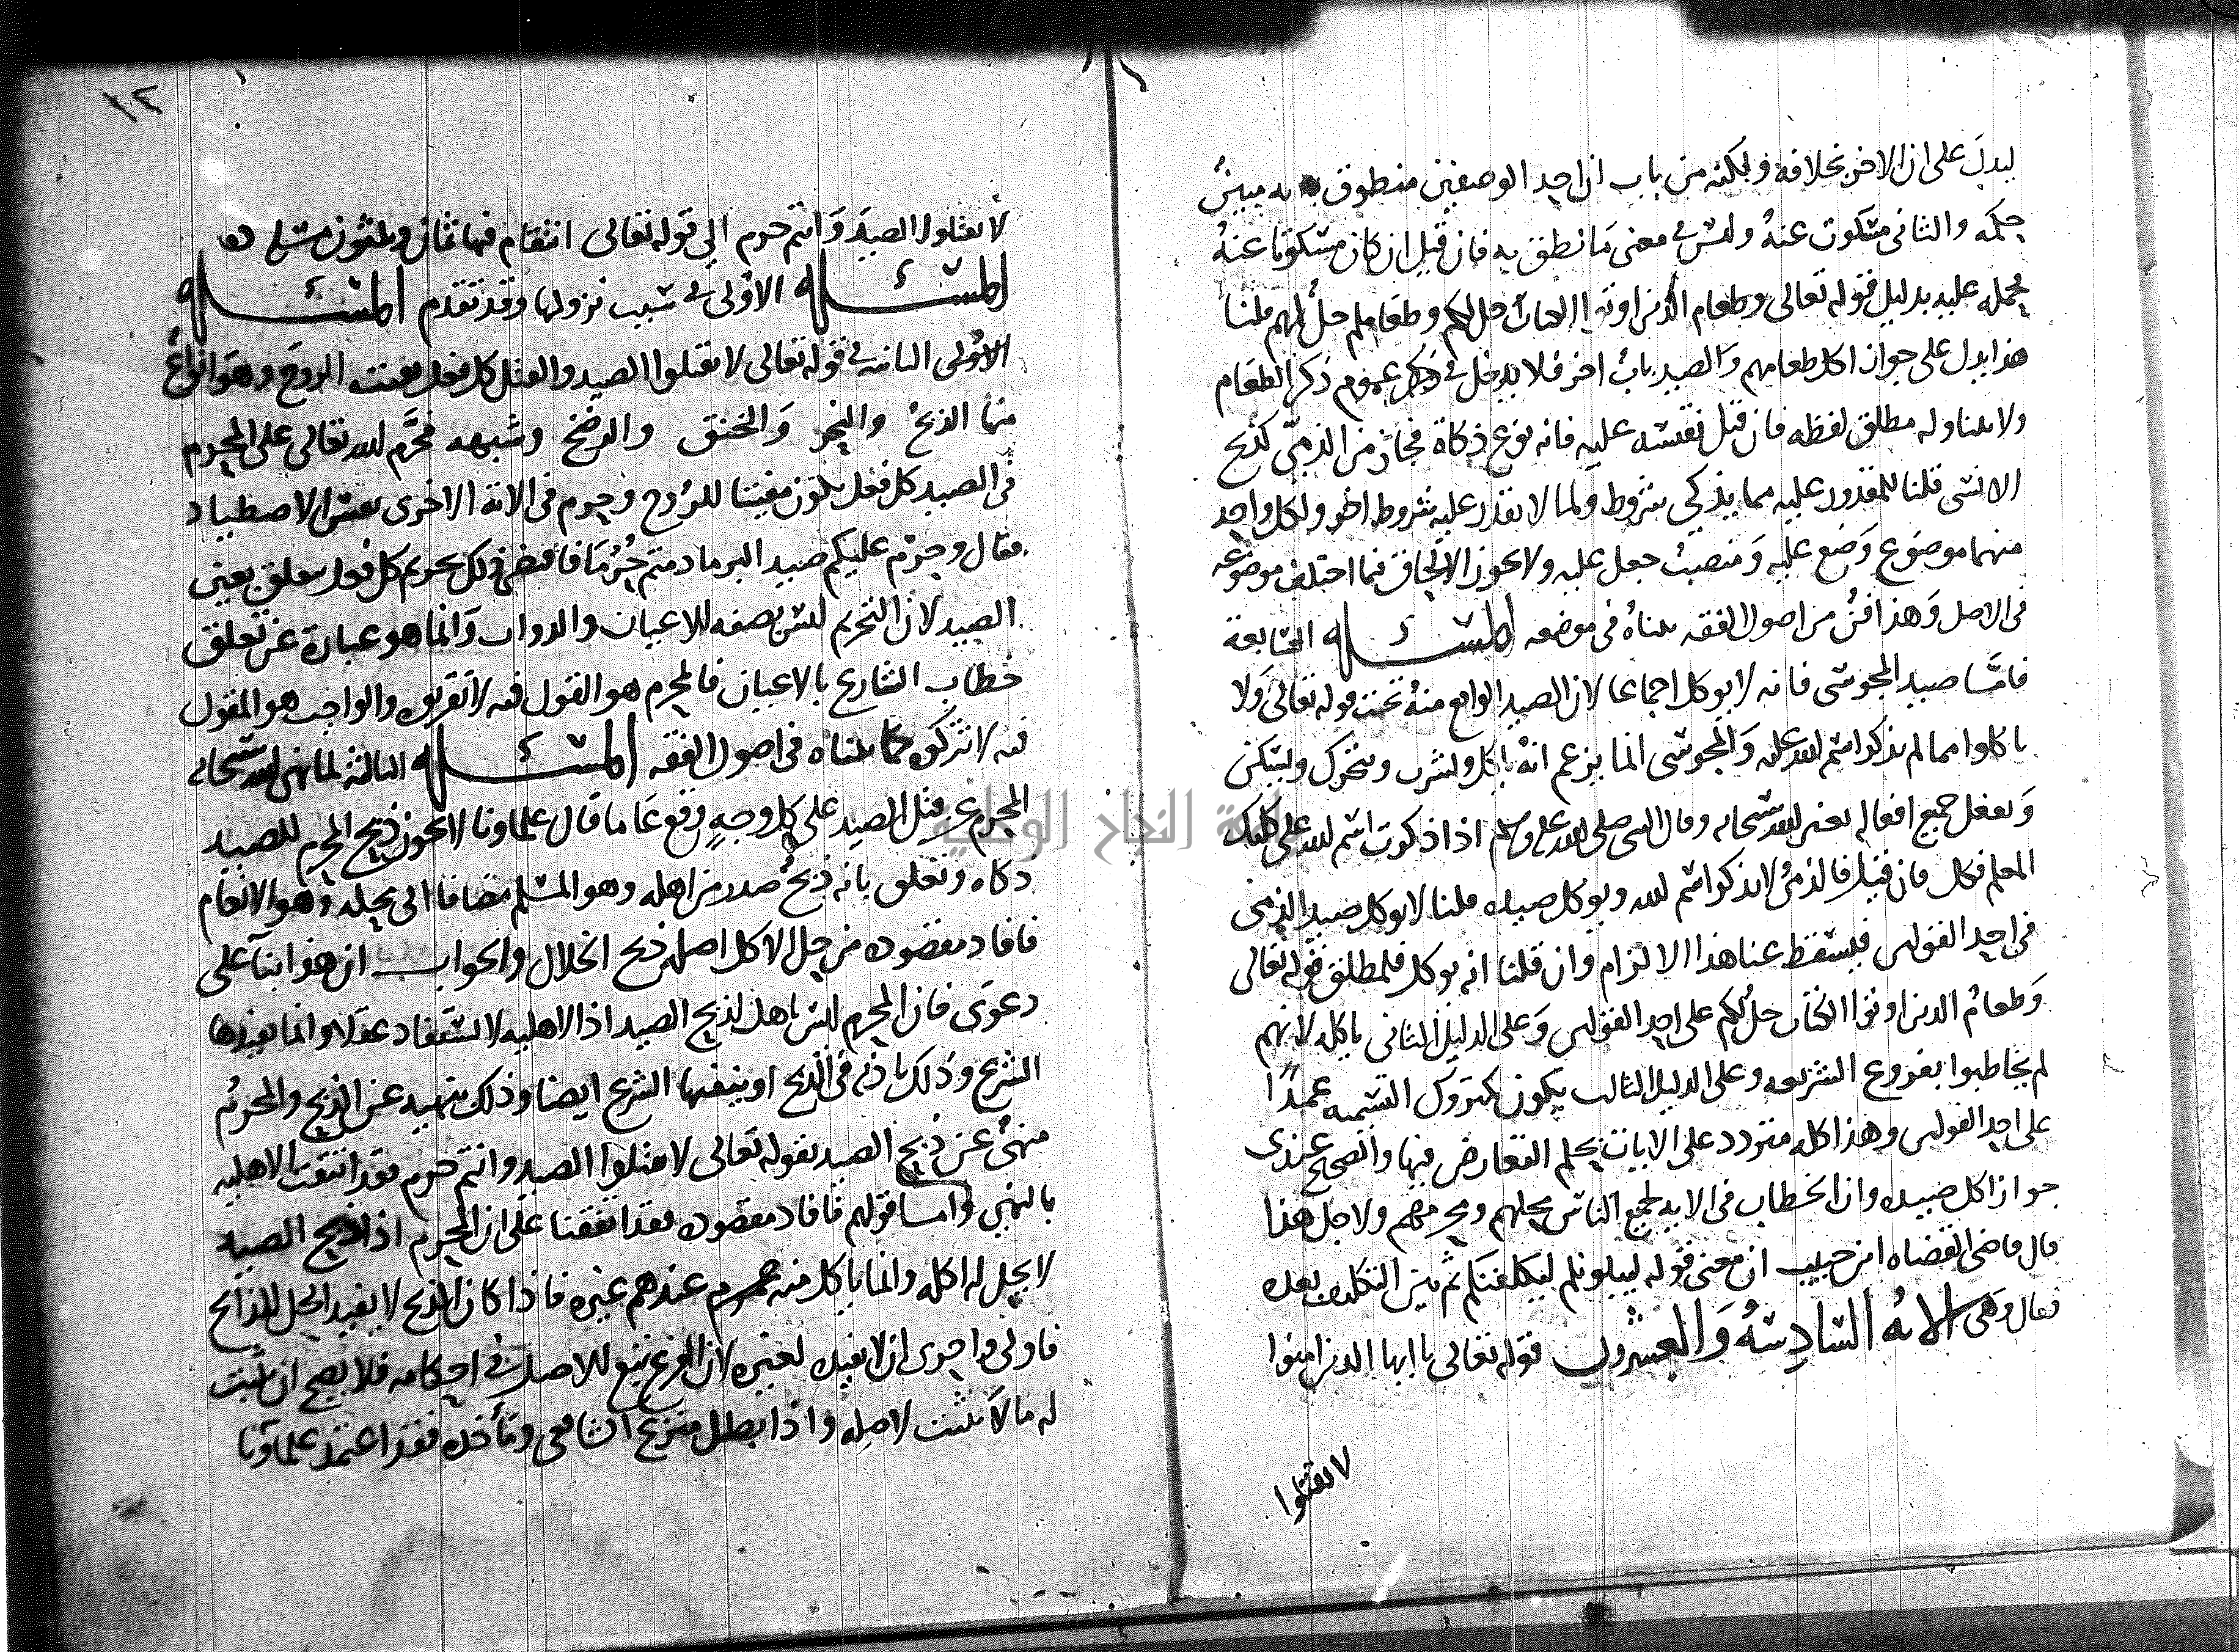 ليدل على ان الاخر بخلافه ولكنه من باب ان احد الوصفين منطوق به مبين
حكمه والثاني مسكوت عنه وليس في معنى ما نطق به فان قيل ان كان مسكوتا عنه
بحمله عليه بدليل قوله تعالى وطعام الذين اوتوا الكتاب حل لكم وطعامكم حل لهم قلنا
هذا يدل على جواز اكل طعامهم والصيد باب اخر فلا يدخل في عموم ذكر الطعام
ولا يتناوله مطلق لفظه فان قيل نقيسه عليه فانه نوع ذكاة فجاز من الذمي كذبح
الانسي قلنا للمقدور عليه مما يذكي شروط ولما لا يقدر عليه شروط اخر ولكل واحد
منهما موضوع وضع عليه ومنصب جعل عليه ولا يجوز الالحاق فيما اختلف موضوعه
في الاصل وهذا فن من اصول الفقه بيناه في موضعه المسئلة السابعة
فاما صيد المجوسي فانه لا يوكل اجماعا لان الصيد الواقع منه تحت قوله تعالى ولا
تاكلوا مما لم يذكر اسم الله عليه والمجوسي انما يزعم انه ياكل ويشرب ويتحرك ويسكن
ويفعل جميع افعاله لغير الله سبحانه وقال النبي صلى الله عليه وسلم اذا ذكرت اسم الله على كلبك
المعلم فكل فان قيل فالذمي لا يذكر اسم الله ويوكل صيده قلنا لا يوكل صيد الذمي
في احد القولين فيسقط عنا هذا الالزام وان قلنا انه يوكل فلمطلق قوله تعالى
وطعام الذين اوتوا الكتاب حل لكم على احد القولين وعلى الدليل الثاني ياكله لانهم
لم يخاطبوا بفروع الشريعه وعلى الدليل الثالث يكون كمتروك التسميه عمدا
على احد القولين وهذا كله متردد على الايات بحكم التعارض فيها والصحيح عندي
جواز اكل صيده وان الخطاب في الايه لجميع الناس محلهم ومحرمهم ولاجل هذا
قال قاضي القضاه ابن حبيب ان معنى قوله ليبلونكم ليكلفنكم ثم بين التكليف بعده
فقال وهي الاية السادسة والعشرون قوله تعالى يا ايها الذين امنوا
لا تقتلوا
١٤
لا تقتلوا الصيد وانتم حرم الى قوله تعالى انتقام فيها ثمان وثلثون مسئلة
المسئلة الاولى في سبب نزولها وقد تقدم المسئلة
الاولى الثانيه في قوله تعالى لا تقتلوا الصيد والقتل كل فعل يفيت الروح وهو انواع
منها الذبح والنحر والخنق والرضخ وشبهه فحرم الله تعالى على المحرم
في الصيد كل فعل يكون مفيتا للروح وحرم في الاية الاخرى نفس الاصطياد
فقال وحرم عليكم صيد البر ما دمتم حرما فاقتضى ذلك تحريم كل فعل يتعلق بعين
الصيد لان التحريم ليس بصفه للاعيان والذوات وانما هو عبارة عن تعلق
خطاب الشارع بالاعيان فالمحرم هو المقول فيه لا تقربوه والواجب هو المقول
فيه لا تتركوه كما بيناه في اصول الفقه المسئلة الثالثة لما نهى الله سبحانه
المحرم عن قتل الصيد على كل وجه وقع عاما قال علماونا لا يجوز ذبح المحرم للصيد
ذكاه وتعلق بانه ذبح صدر من اهله وهو المسلم مضافا الى محله وهو الانعام
فافاد مقصوده من حل الاكل اصله ذبح الحلال والجواب ان هذا بناء على
دعوى فان المحرم ليس باهل لذبح الصيد اذ الاهليه لا تستفاد عقلا وانما يفيدها
الشرع وذلك باذنه في الذبح او ينفيها الشرع ايضا وذلك بنهيه عن الذبح والمحرم
منهي عن ذبح الصيد بقوله تعالى لا تقتلوا الصيد وانتم حرم فقد انتفت الاهليه
بالنهي واما قولهم فافاد مقصوده فقد اتفقنا على ان المحرم اذا ذبح الصيد
لا يحل له اكله وانما ياكل منه عندهم غيره فاذا كان الذبح لا يفيد الحل للذابح
فاولى واحرى ان لا يفيده لغيره لان الفرع تبع للاصل في احكامه فلا يصح ان يثبت
له ما لا يثبت لاصله واذا بطل منزع الشافعي وماخذه فقد اعتمد علماونا
جامعة النجاح الوطنية